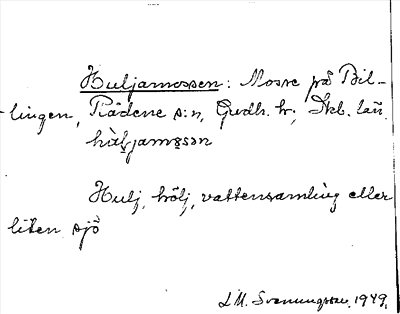 Huljamossen: Mosse på Bil-
lingen, Rådene s:n, Gudh. h., Skb. län.
Hulj, hölj, vattensamling eller
liten sjö
S.M. Svenungsson, 1949.